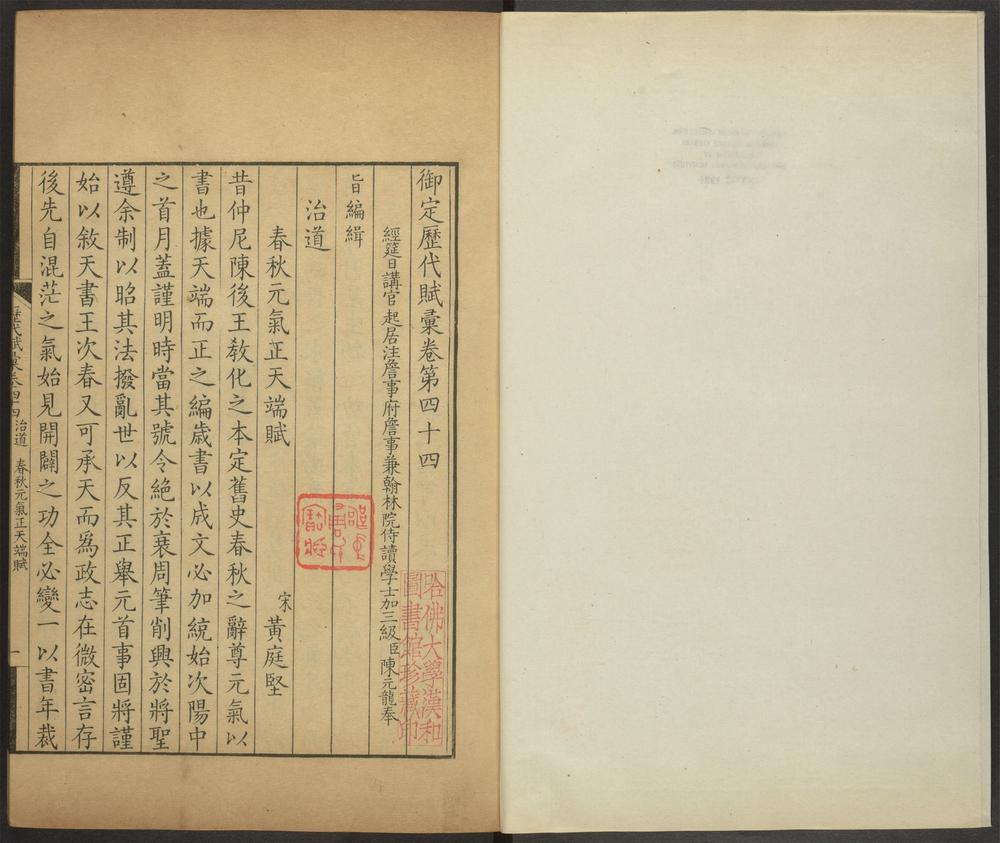 御定歷代賦彙卷第四十四
經筵日講官起居注詹事府詹事兼翰林院侍讀學士加三級臣陳元龍奉
旨編緝
治道
春秋元氣正天端賦
宋黃庭堅
昔仲尼陳後王敎化之本定舊史春秋之辭尊元氣以
書也據天端而正之編歲書以成文必加統始次陽中
之首月蓋謹明時當其號令絕於衰周筆削興於將聖
遵余制以昭其法撥亂世以反其正舉元首事固將謹
始以敘天書王次春又可承天而爲政志在微密言存
後先自混茫之氣始見開闢之功全必變一以書年裁
歷代賦彙卷四十四 治道 春秋元氣正天端賦 一
哈佛大學漢和
圖書館珍藏印